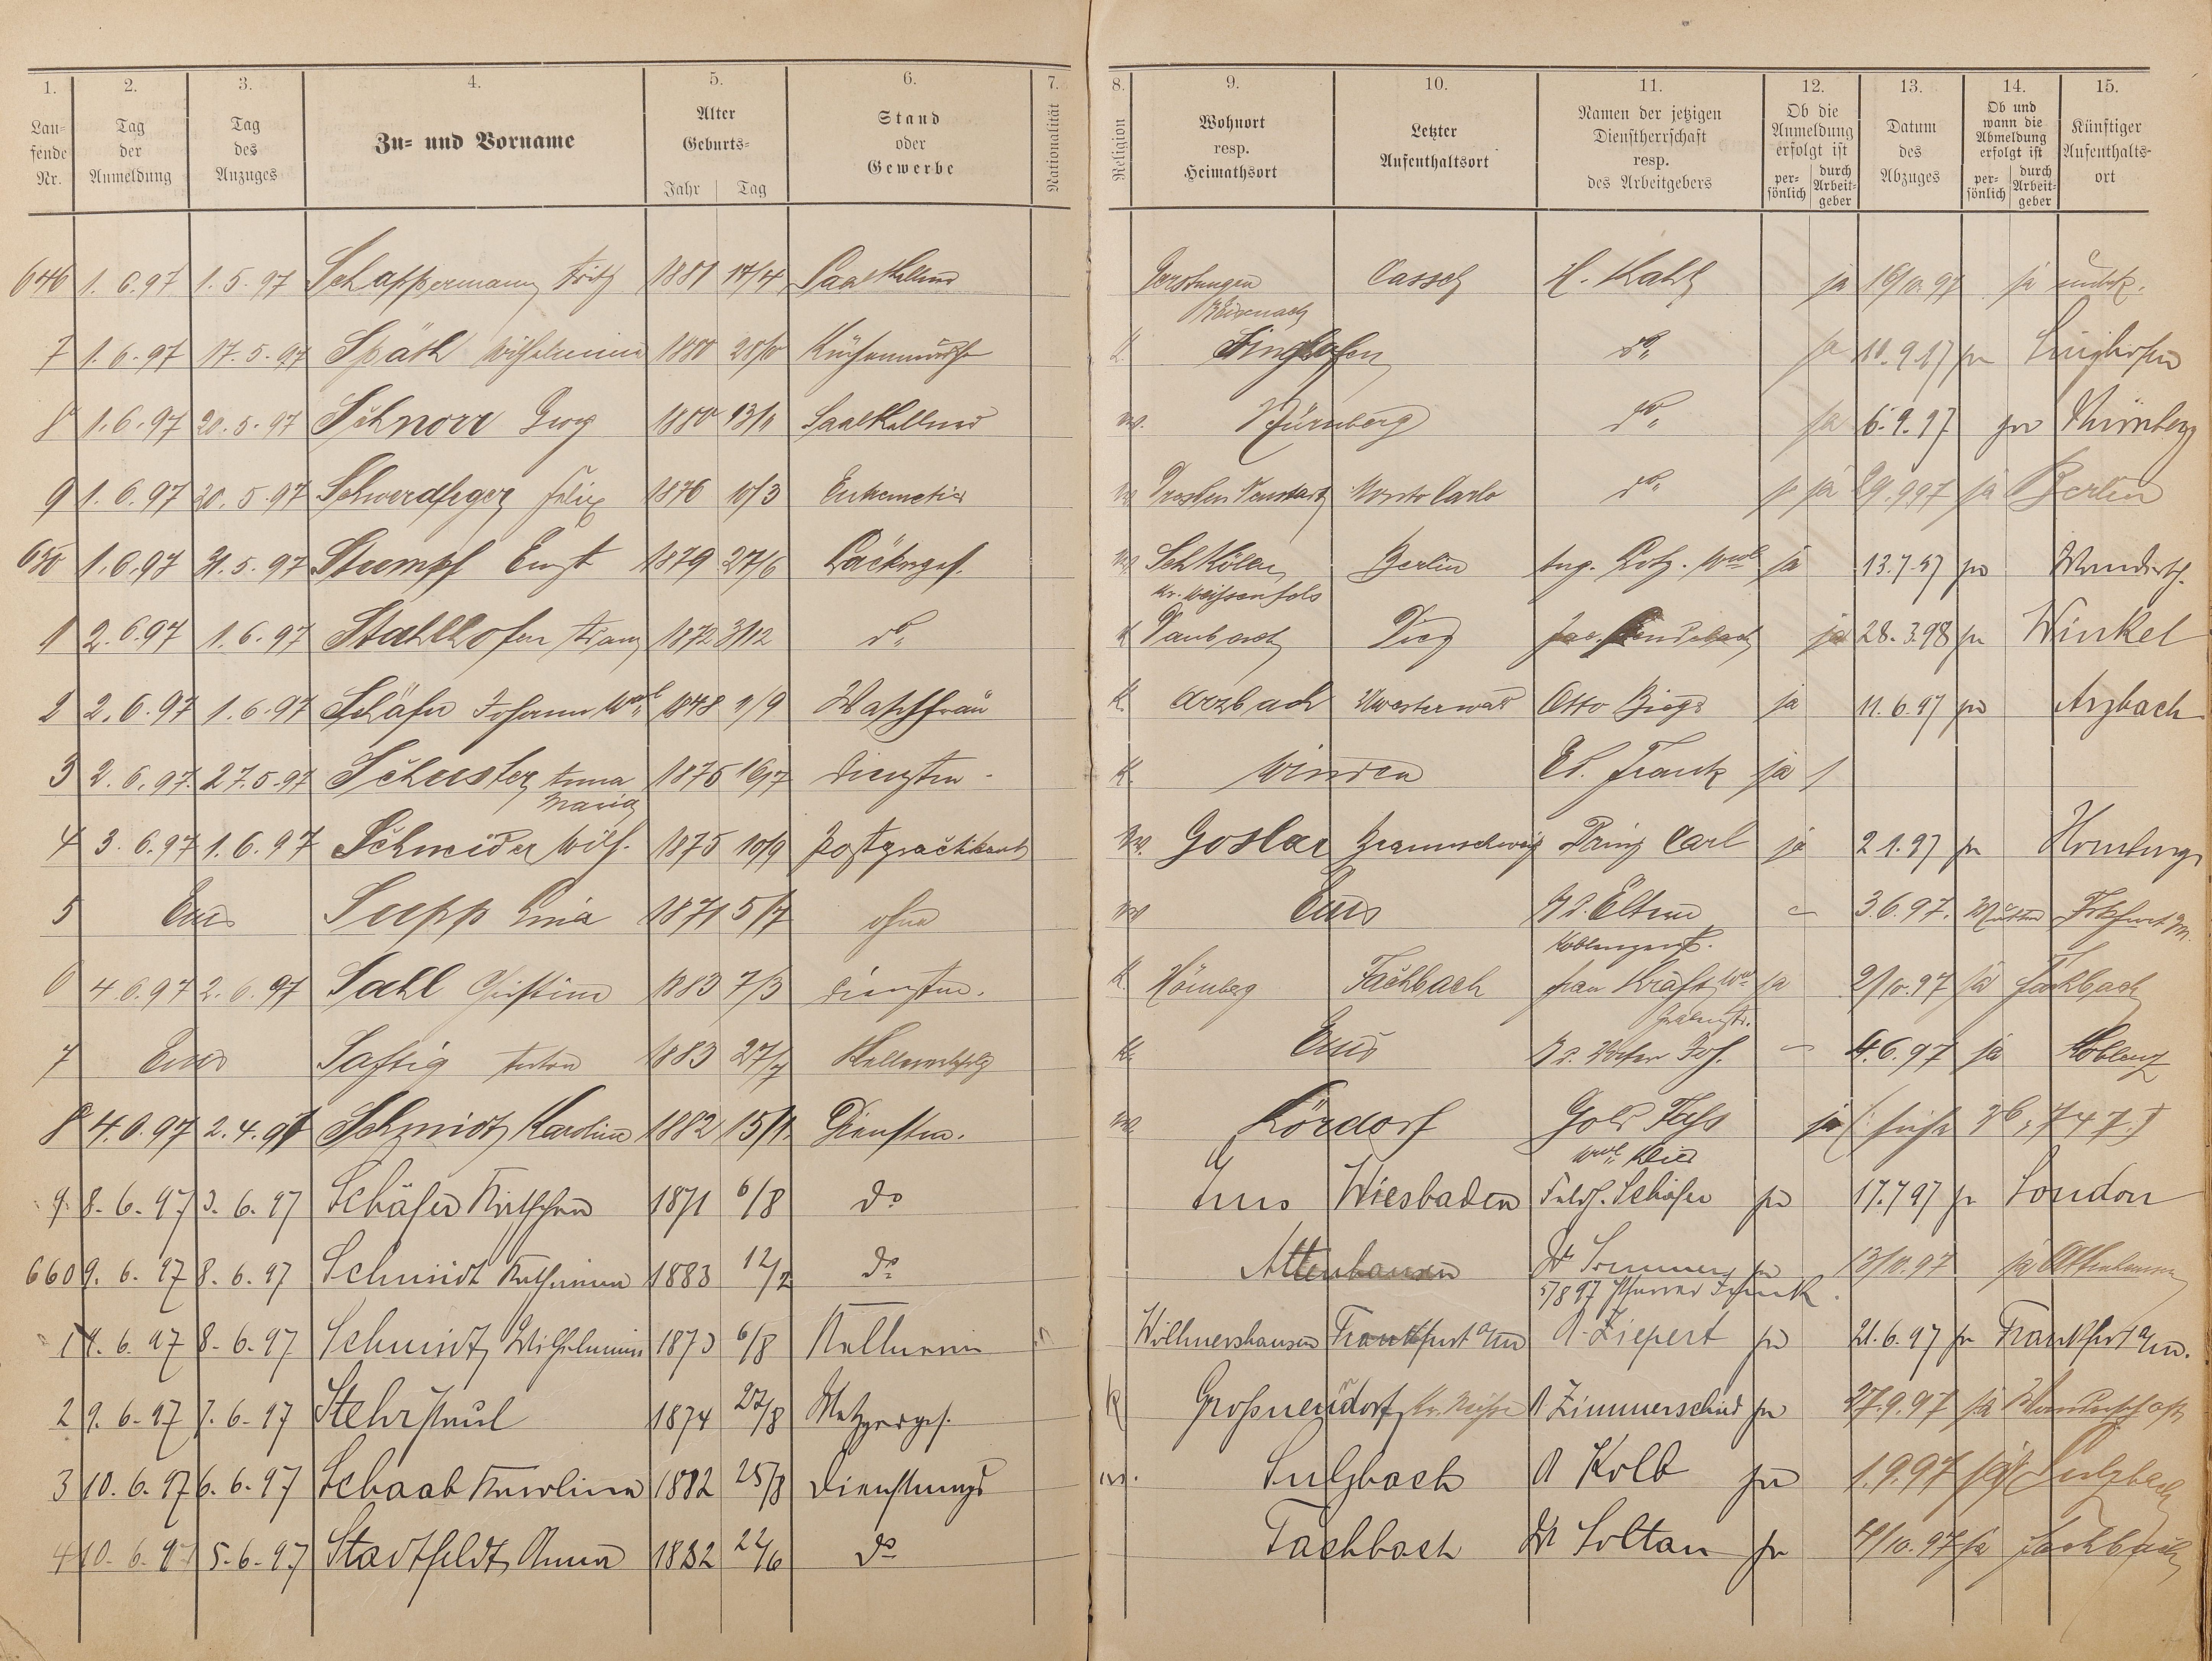 1. 2. 3. 4. 5. 6. 7. 8. 9. 10. 11. 12. 13. 14. 15.
Lau-
fende
Nr.
Tag
der
Anmeldung
Tag
des
Anzuges
Zu- und Vorname
Alter
Geburts-
Jahr Tag
Stand
oder
Gewerbe
Nationalität
Religion
Wohnort
resp.
Heimathsort
Letzter
Aufenthaltsort
Namen der jetzigen
Dienstherrschaft
resp.
des Arbeitgebers
Ob die
Anmeldung
erfolgt ist
per-
sönlich
durch
Arbeit-
geber
Datum
des
Abzuges
Ob und
wann die
Abmeldung
erfolgt ist
per-
sönlich
durch
Arbeit-
geber
Künftiger
Aufenthalts-
ort
646 1.6.97 1.5.97 Schappermann Fritz 1881 17/4 Saalkellner Gerstungen Cassel H. Kahl ja 16/10 97 ja unbek.
B Eisenach
7 1.6.97 17.5.97 Späth Wilhelmine 1880 28/10 K. Singhofen do ja 10.9.97 ja Singhofen
8 1.6.97 20.5.97 Schnorr Georg 1880 13/11 Saalkellner ev. Nürnberg do ja 6.9.97 ja Nürnberg
9 1.6.97 20.5.97 Schwerdfeger Felix 1876 10/3 ev Dresden Neustadt Monte Carlo do ja 29.9 97 ja Berlin
650 1.6.97 31.5.97 Stumpf Ernst 1879 27/6 Bäckerges. ev Schkölen Berlin Aug. Wwe ja 13.7.97 ja Wandersch.
Kr. Weissenfols
1 2.6.97 1.6.97 Stahlhofen Franz 1872 3/12 do K Daubach Diez Jac. ja 28.3.98 ja Winkel
2 2.6.97 1.6.97 Schäfer Johann Wwe 1848 1/9 Waschfrau K. Arzbach Otto ja 11.6.97 ja Arzbach
3 2.6.97. 27.5.97 Schuster Anna 1875 16/7 Dienstm. K. Winden Ed. Frank ja
Maria
4 3.6.97 1.6.97 Schneider Wilh. 1875 10/9 Postpracktikant ev. Goslar Braunschweig Prinz Carl ja 2.1.97 ja Homburg
5 Ems Supp Lina 1871 5/7 ohne ev Ems B d. Eltern – 3.6.97. Mutter Frkfurt M.
Koblenzerst.
6 4.6.97 2.6.97 Sahl Christine 1883 7/3 Dienstm. K Hömberg Fachbach Frau Kraft Wwe ja 2/10.97 ja Fachbach
Gräbenstr.
7 Ems Saftig Anton 1883 27/7 K. Ems B d. Vater Joh. – 4.6.97 ja Koblenz
8 4.6.97 2.4.97 Schmidt Karoline 1882 15/11 Dienstm. ev Kördorf Gold Fass ja (: siehe No 747 :)
Wwe
9. 8.6.97 3.6.97 Schäfer Käthchen 1871 6/8 do Ems Wiesbaden Schäfer ja 17.7 97 ja London
660 9.6.97 8.6.97 Schmidt Katharina 1883 12/2 do Attenhausen Dr Sommer ja 13/10.97 ja Attenhausen
5/8 97 Pfarrer Schenk
1 9.6.97 8.6.97 Schmidt Wilhelmine 1873 6/8 Kellnerin Willmershausen Frankfurt a/m A. Ziepert ja 21.6.97 ja Frankfurt a/m.
2 9.6.97 7.6.97 Stehr Paul 1874 27/8 Metzgerges. K Großneundorf Kr. Neisse A Zimmerschied ja 27.9.97 ja Wanderschaft
3 10.6.97 6.6.97 Schaab Karolina 1882 25/8 Dienstmagd ev. Sulzbach A Kolb ja 1.9.97 ja Sulzbach
4 10.6.97 5.6.97 Stadtfeldt Anna 1882 22/6 do Fachbach Dr Soltan ja 4/10.97 ja Fachbach